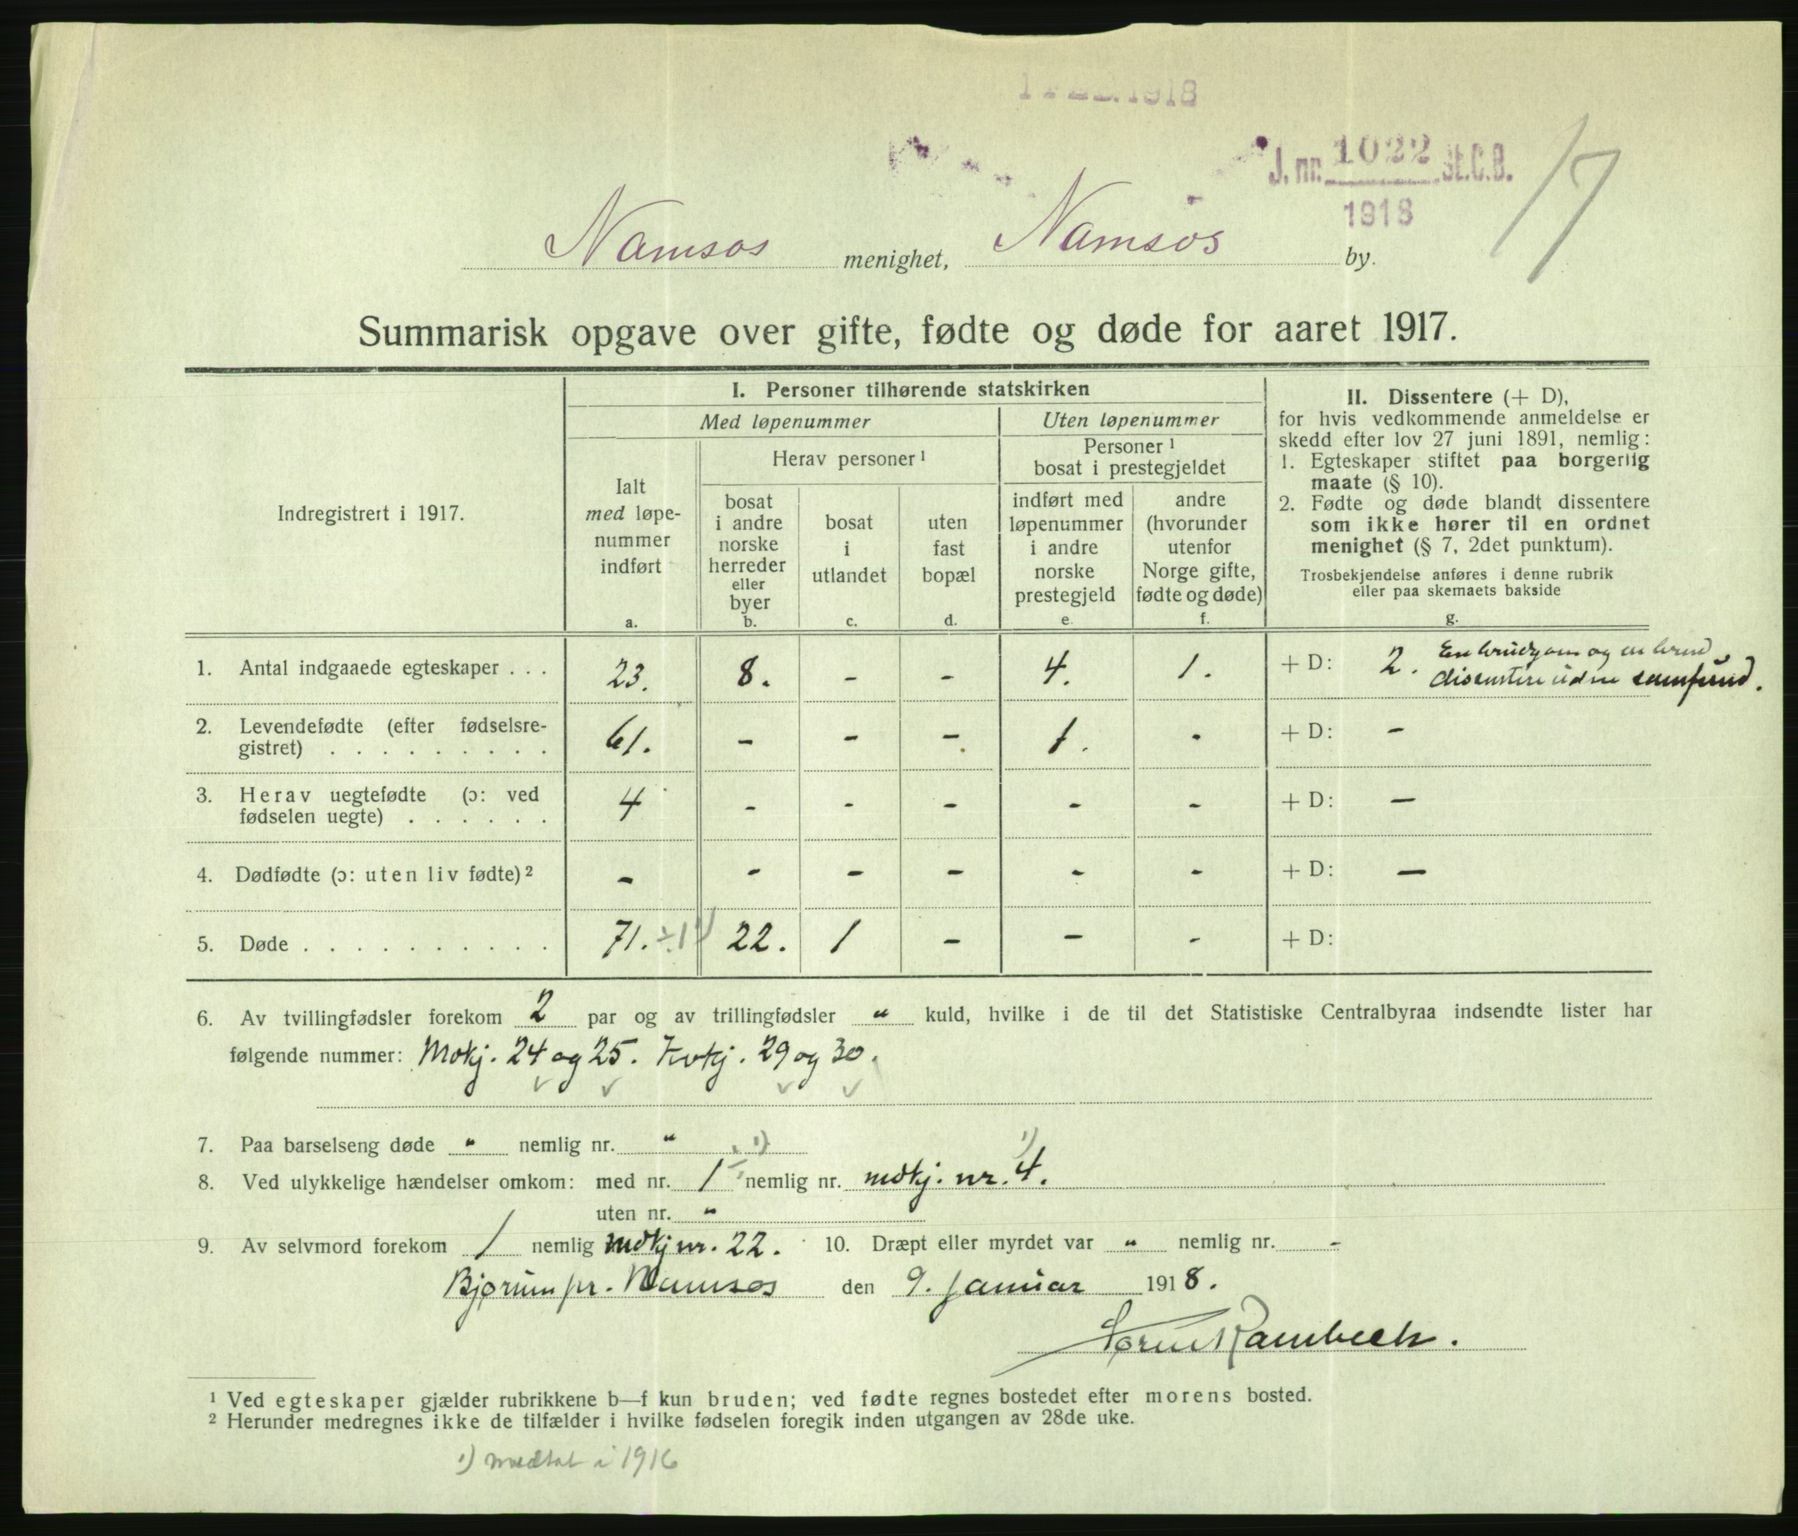 1918
J. nr. 1022 St.C.B.
1918
17
Namsos menighet, Namsos by.
Summarisk opgave over gifte, fødte og døde for aaret 1917.
Indregistrert i 1917.
I. Personer tilhørende statskirken
Med løpenummer
Uten løpenummer
Herav personer ¹
Personer ¹
bosat i prestegjeldet
Ialt
med løpe-
nummer
indført
a.
bosat
i andre
norske
herreder
eller
byer
b.
bosat
i
utlandet
c.
uten
fast
bopæl
d.
indført med
løpenummer
i andre
norske
prestegjeld
e.
andre
(hvorunder
utenfor
Norge gifte,
fødte og døde)
f.
II. Dissentere (+ D),
for hvis vedkommende anmeldelse er
skedd efter lov 27 juni 1891, nemlig:
1. Egteskaper stiftet paa borgerlig
maate (§ 10).
2. Fødte og døde blandt dissentere
som ikke hører til en ordnet
menighet (§ 7, 2det punktum).
Trosbekjendelse anføres i denne rubrik
eller paa skemaets bakside
g.
1. Antal indgaaede egteskaper . . . 23. 8. - - 4. 1. + D: 2. En brudgom og en brud
dissentere uden samfund.
2. Levendefødte (efter fødselsre-
gistret) . . . . . . . . . 61. - - - 1. - + D: -
3. Herav uegtefødte (ɔ: ved
fødselen uegte) . . . . . . 4 - - - - - + D: -
4. Dødfødte (ɔ: uten liv fødte) ² - - - - - - + D: -
5. Døde . . . . . . . . . . 71. ÷1 ¹) 22. 1 - - - + D:
6. Av tvillingfødsler forekom 2 par og av trillingfødsler " kuld, hvilke i de til det Statistiske Centralbyraa indsendte lister har
følgende nummer: Mdkj. 24 og 25. Kvkj. 29 og 30.
7. Paa barselseng døde " nemlig nr. "
8. Ved ulykkelige hændelser omkom: med nr. 1 ÷1 ¹) nemlig nr. mdkj. nr. 4. ¹)
uten nr. "
9. Av selvmord forekom 1 nemlig mdkj nr. 22. 10. Dræpt eller myrdet var " nemlig nr. -
Bjørum pr. Namsos den 9. januar 1918.
Søren Rambech.
¹ Ved egteskaper gjælder rubrikkene b—f kun bruden; ved fødte regnes bostedet efter morens bosted.
² Herunder medregnes ikke de tilfælder i hvilke fødselen foregik inden utgangen av 28de uke.
¹) medtat i 1916